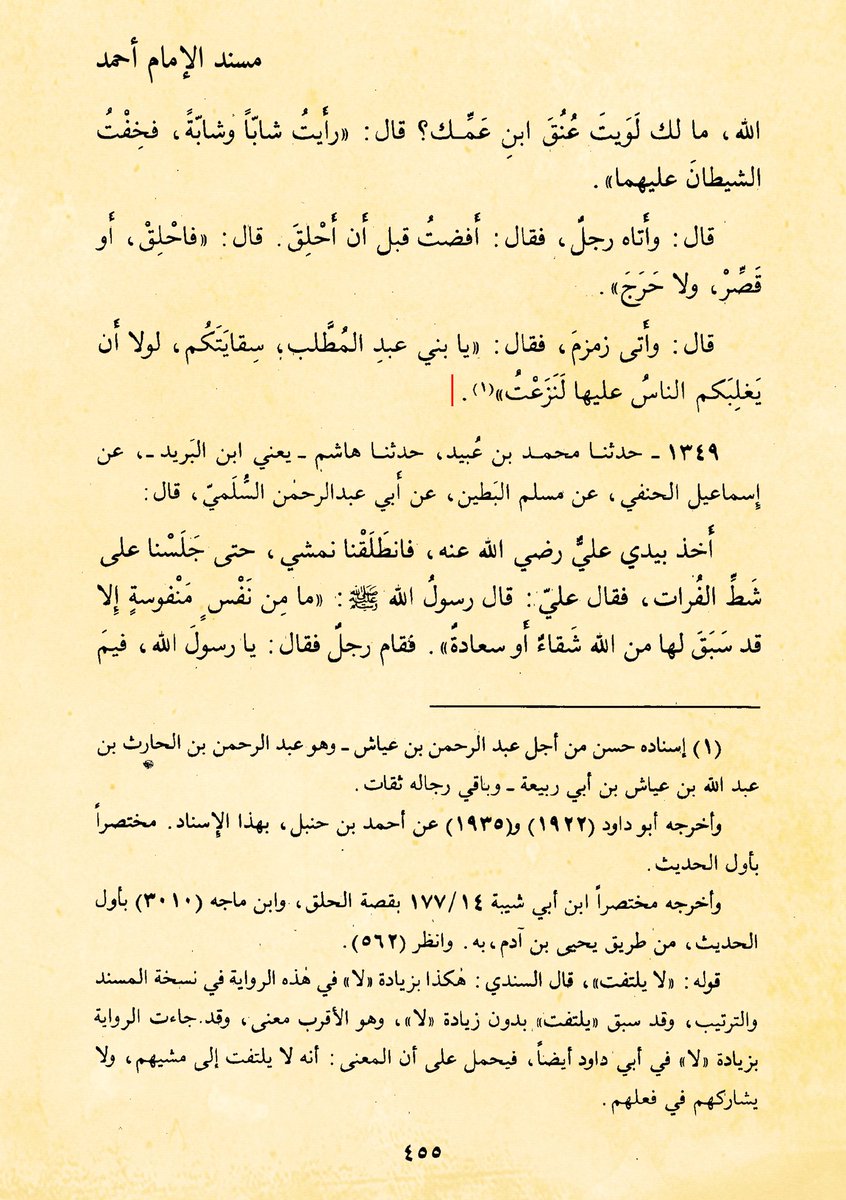 مسند الإمام أحمد
الله، ما لك لَوَيتَ عُنُقَ ابنِ عَمِّـك؟ قال: «رأَيتُ شابّاً وشابّةً، فخِفْتُ
الشيطانَ عليهما».
قال: وأَتاه رجلٌ، فقال: أَفضتُ قبل أَن أَحْلِقَ. قال: «فاحْلِقْ، أَو
قَصِّرْ، ولا حَرَجَ».
قال: وأَتى زمزمَ، فقال: «يا بني عبدِ المُطَّلب، سِقايَتَكُم، لولا أَن
يَغلِبَكم الناسُ عليها لَنَزَعْتُ»(١).
١٣٤٩ ـ حدثنـا محمـد بن عُبيد، حدثنـا هاشم ـ يعني ابن البَريد ـ، عن
إِسماعيل الحنفي، عن مسلم البَطين، عن أَبي عبدالرحمٰن السُّلَميّ، قال:
أَخذ بيدي عليٌّ رضي الله عنه، فانطَلَقْنا نمشي، حتى جَلَسْنا على
شَطِّ الفُرات، فقال عليّ: قال رسولُ الله ﷺ: «ما مِن نَفْسٍ مَنْفوسةٍ إِلا
قد سَبَقَ لها من الله شَقاءٌ أَو سعادةٌ». فقام رجلٌ فقال: يا رسولَ الله، فيمَ
(١) إسناده حسن من أجل عبد الرحمن بن عياش ـ وهو عبد الرحمن بن الحارث بن
عبد الله بن عياش بن أبي ربيعة ـ وباقي رجاله ثقات.
وأخرجه أبو داود (١٩٢٢) و(١٩٣٥) عن أحمد بن حنبل، بهذا الإِسناد. مختصراً
بأول الحديث.
وأخرجه مختصراً ابن أبي شيبة ١٤/١٧٧ بقصة الحلق، وابن ماجه (٣٠١٠) بأول
الحديث، من طريق يحيى بن آدم، به. وانظر (٥٦٢).
قوله: «لا يلتفت»، قال السندي: هٰكذا بزيادة «لا» في هٰذه الرواية في نسخة المسند
والترتيب، وقد سبق «يلتفت» بدون زيادة «لا»، وهو الأقرب معنى، وقد جاءت الرواية
بزيادة «لا» في أبي داود أيضاً، فيحمل على أن المعنى: أنه لا يلتفت إلى مشيهم، ولا
يشاركهم في فعلهم.
٤٥٥